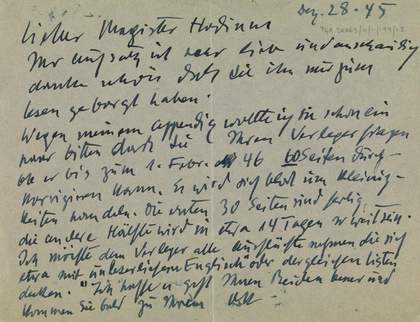 Dez. 28 - 45
Lieber Magister Hodinus
Ihr Aufsatz ist sehr lieb und anschaulich
danke schön dass Sie ihn mir zum
lesen geborgt haben.
Wegen meinem Appendix wollte ich Sie schon ein
mal bitten dass Sie Ihren Verleger fragen
ob er bis zum 1. Febr. 46 60 Seiten durch-
korrigieren kann. Es wird sich bloß um Kleinig-
keiten handeln. Die ersten 30 Seiten sind fertig,
die andere Hälfte wird in etwa 14 Tagen so weit sein.
Ich möchte dem Verleger alle Ausflüchte nehmen die sich
etwa mit "unleserlichem Englisch" oder dergleichen Listen
decken. Ich hoffe es geht Ihnen Beiden besser und
kommen Sie bald zu Ihrem